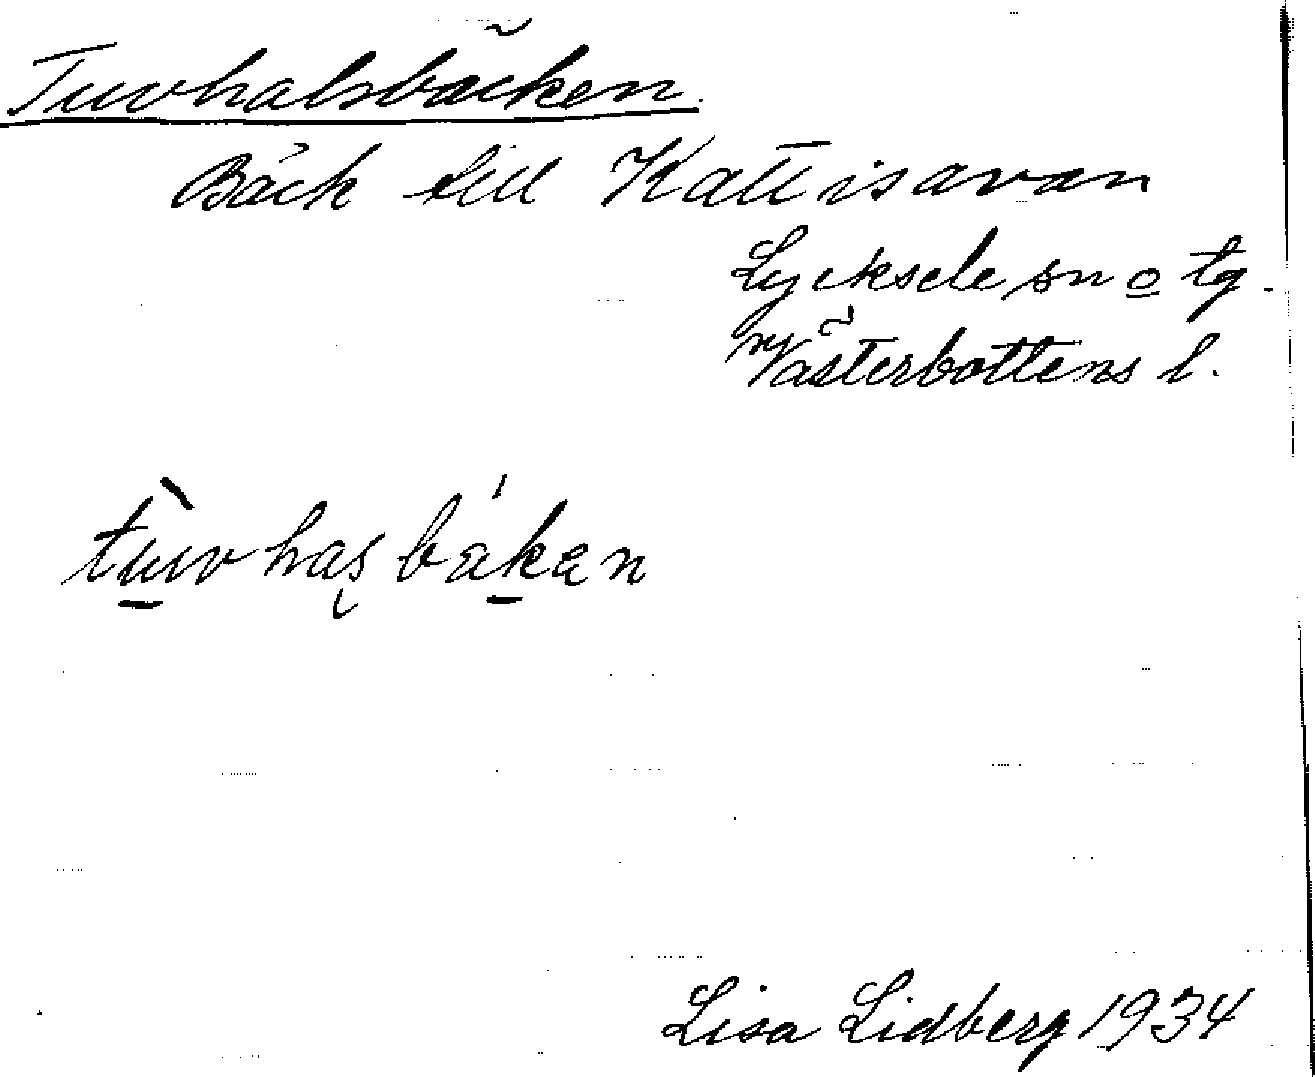 Tuvhalsbäcken
Bäck till Kattisavan
Lycksele sn o tg.
Västerbottens l.
tùvhasbä́kən
Lisa Lidberg 1934